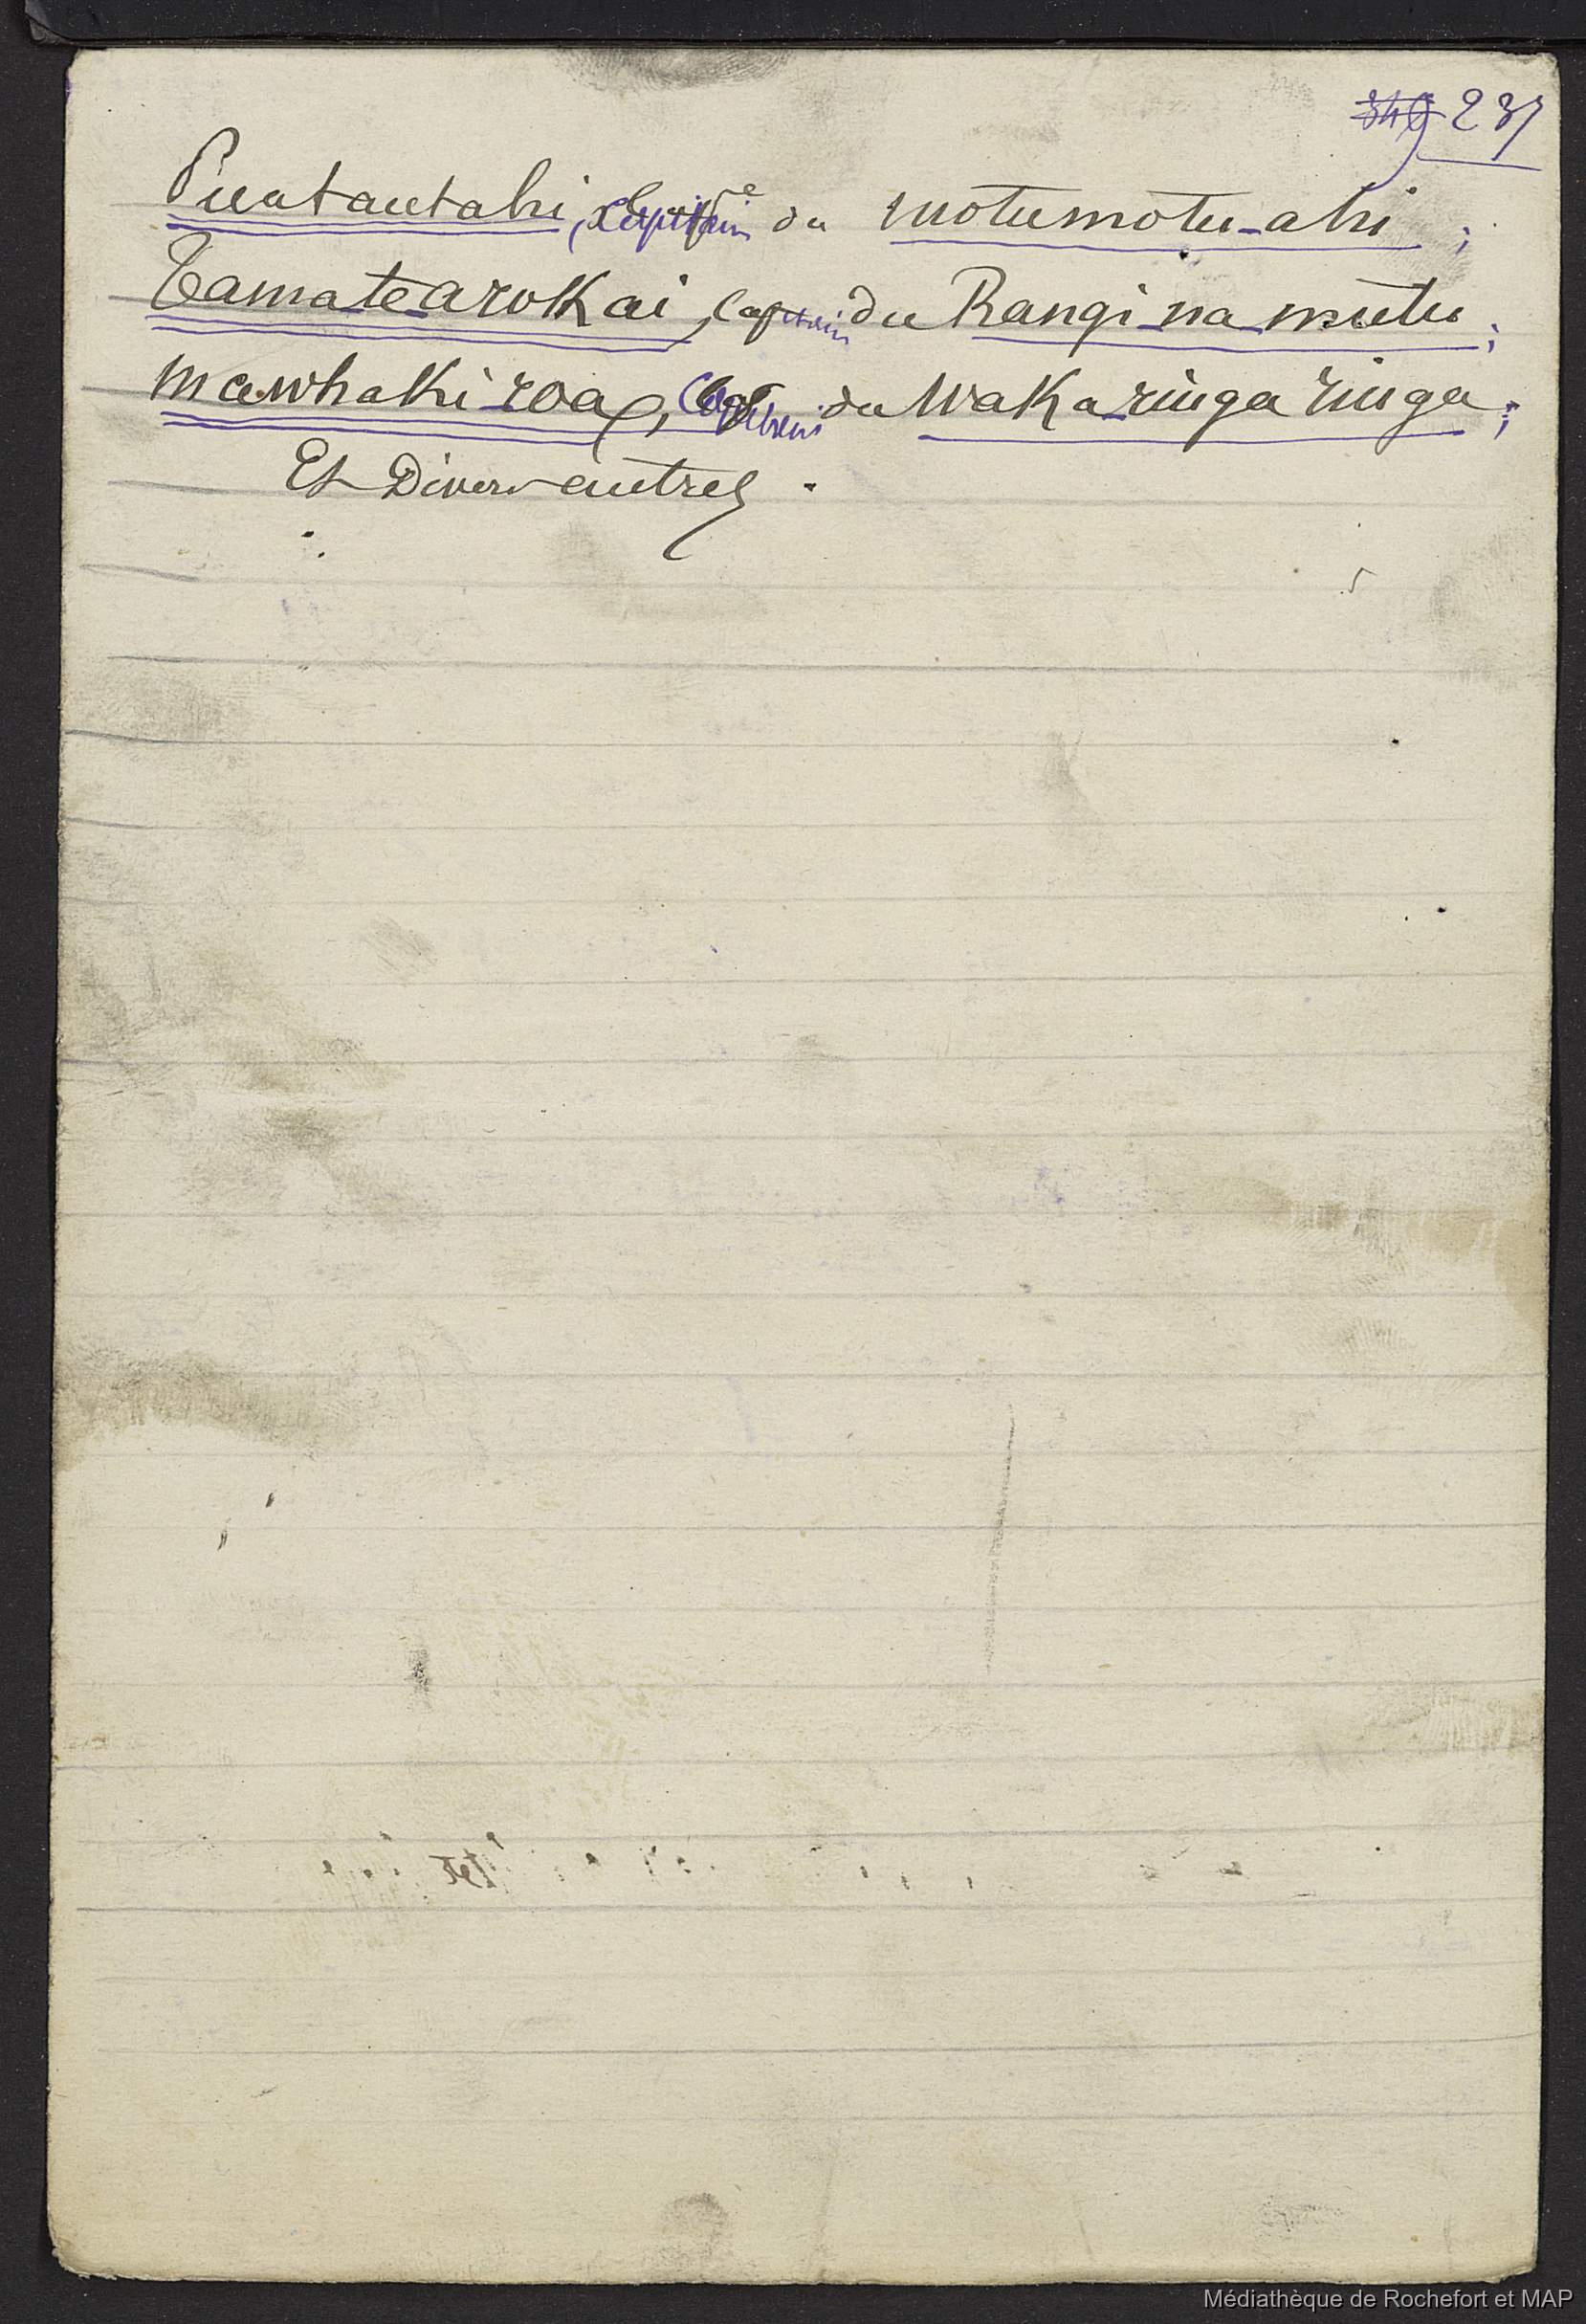 237
Puatautahi, Capitain du motumotu-ahi ;
Tamatea rokai, Capitain du Rangi-na-mutu ;
mawhaki-roa, Capitain du Waka-ringaringa ;
Et Divers autres .
Médiathèque de Rochefort et MAP